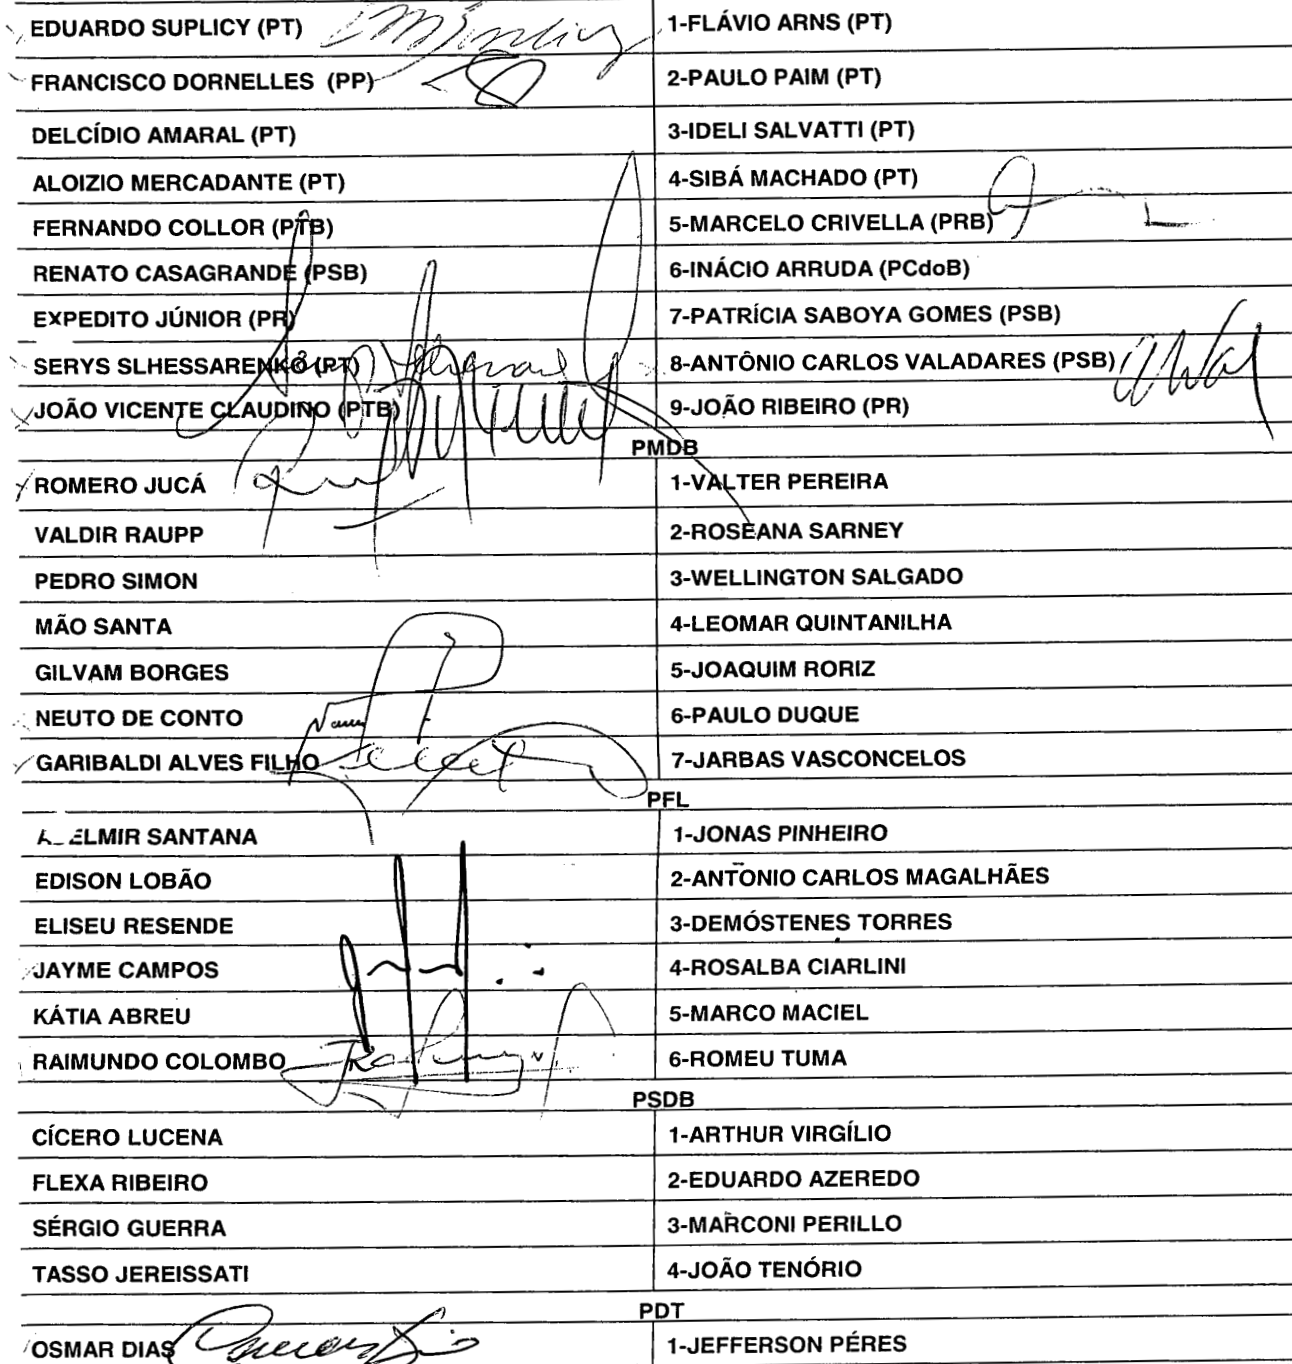 EDUARDO SUPLICY (PT) 1-FLÁVIO ARNS (PT)
FRANCISCO DORNELLES (PP) 2-PAULO PAIM (PT)
DELCÍDIO AMARAL (PT) 3-IDELI SALVATTI (PT)
ALOIZIO MERCADANTE (PT) 4-SIBÁ MACHADO (PT)
FERNANDO COLLOR (PTB) 5-MARCELO CRIVELLA (PRB)
RENATO CASAGRANDE (PSB) 6-INÁCIO ARRUDA (PCdoB)
EXPEDITO JÚNIOR (PR) 7-PATRÍCIA SABOYA GOMES (PSB)
SERYS SLHESSARENKO (PT) 8-ANTÔNIO CARLOS VALADARES (PSB)
JOÃO VICENTE CLAUDINO (PTB) 9-JOÃO RIBEIRO (PR)
PMDB
ROMERO JUCÁ 1-VALTER PEREIRA
VALDIR RAUPP 2-ROSEANA SARNEY
PEDRO SIMON 3-WELLINGTON SALGADO
MÃO SANTA 4-LEOMAR QUINTANILHA
GILVAM BORGES 5-JOAQUIM RORIZ
NEUTO DE CONTO 6-PAULO DUQUE
GARIBALDI ALVES FILHO 7-JARBAS VASCONCELOS
PFL
ELMIR SANTANA 1-JONAS PINHEIRO
EDISON LOBÃO 2-ANTÔNIO CARLOS MAGALHÃES
ELISEU RESENDE 3-DEMÓSTENES TORRES
JAYME CAMPOS 4-ROSALBA CIARLINI
KÁTIA ABREU 5-MARCO MACIEL
RAIMUNDO COLOMBO 6-ROMEU TUMA
PSDB
CÍCERO LUCENA 1-ARTHUR VIRGÍLIO
FLEXA RIBEIRO 2-EDUARDO AZEREDO
SÉRGIO GUERRA 3-MARCONI PERILLO
TASSO JEREISSATI 4-JOÃO TENÓRIO
PDT
OSMAR DIAS 1-JEFFERSON PÉRES